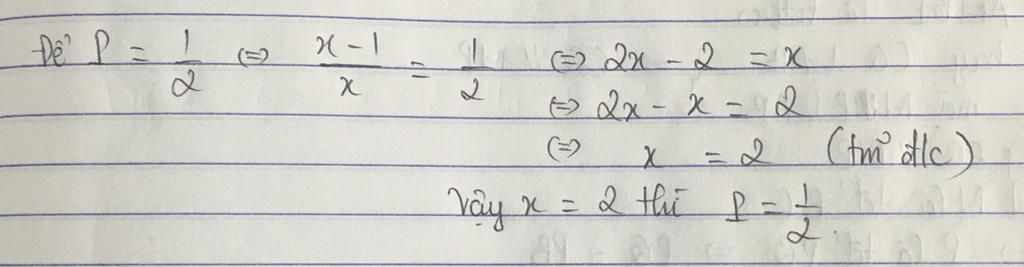 Để P = 1/2 <=> (x - 1)/x = 1/2 <=> 2x - 2 = x
<=> 2x - x = 2
<=> x = 2 (tm² đk)
Vậy x = 2 thì P = 1/2.